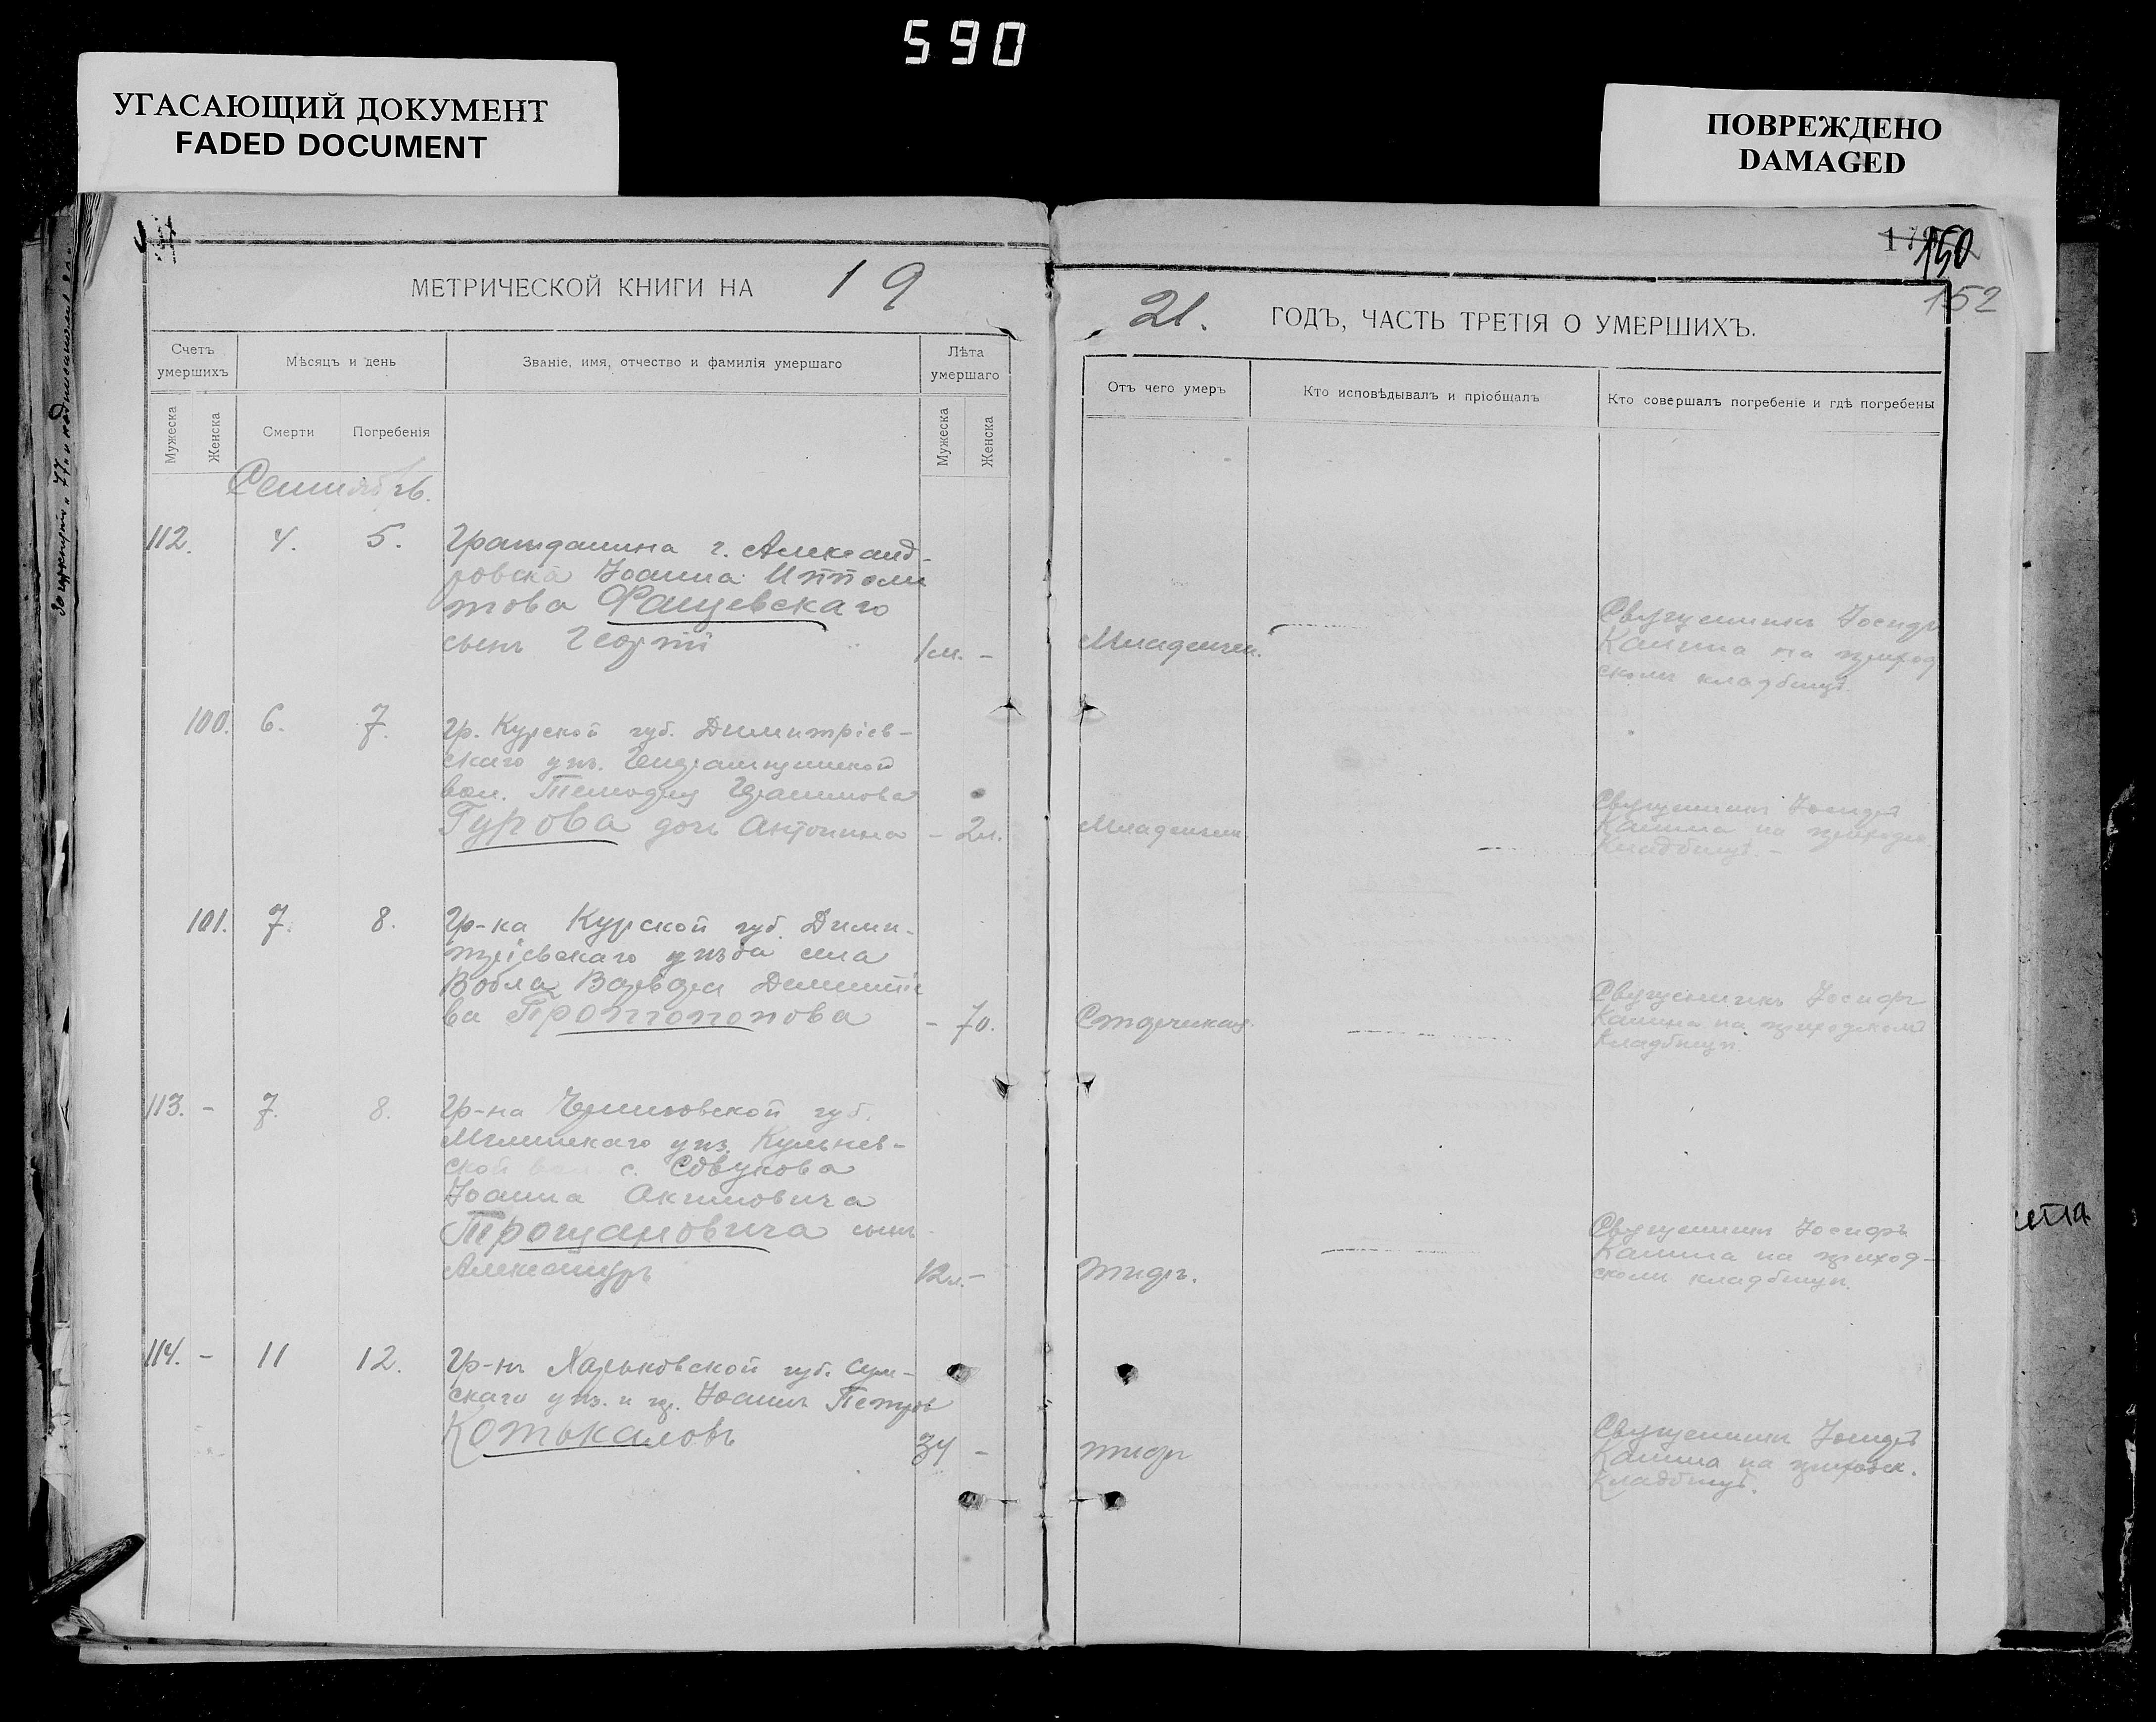 590
УГАСАЮЩИЙ ДОКУМЕНТ
FADED DOCUMENT
ПОВРЕЖДЕНО
DAMAGED
150
152
МЕТРИЧЕСКОЙ КНИГИ НА 19
21. ГОДЪ, ЧАСТЬ ТРЕТІЯ О УМЕРШИХЪ.
Счетъ умершихъ
Мѣсяцъ и день
Званіе, имя, отчество и фамилія умершаго
Лѣта умершаго
Мужеска
Женска
Смерти
Погребенія
Мужеска
Женска
Отъ чего умеръ
Кто исповѣдывалъ и пріобщалъ
Кто совершалъ погребеніе и гдѣ погребены
Сентябрь.
112. 4. 5. Гражданина г. Александ-
ровска Іоанна Ипполи
това Фащевскаго
сынъ Георгій 1м. -
Младенчен.
Священникъ Іосифъ
Калина на приход
скомъ кладбищѣ.
100. 6. 7. Гр. Курской губ. Димитріев-
скаго уѣз.
вол. Герасимова
Гурова дочь Антонина - 2м.
Младенчен.
Священникъ Іосифъ
Калина на приходс.
кладбищѣ. -
101. 7. 8. Гр-ка Курской губ. Дими-
тріевскаго уѣзда села
Вобла Варвара Димитріе
ва Протопопова - 70.
Старческая.
Священникъ Іосифъ
Калина на приходскомъ
кладбищѣ.
113. - 7. 8. Гр-на Черниговской губ.
Мглинскаго уѣз. Кульнев-
ской вол. с.
Іоанна Акимовича
Трощановича сынъ
Александръ 12л. -
тифъ.
Священникъ Іосифъ
Калина на приход-
скомъ кладбищѣ.
114. - 11 12. Гр-нъ Харьковской губ. Сум-
скаго уѣз. и гр. Іоаннъ Петровъ
Котькаловъ 34 -
тифъ
Священникъ Іосифъ
Калина на приходск.
кладбищѣ.